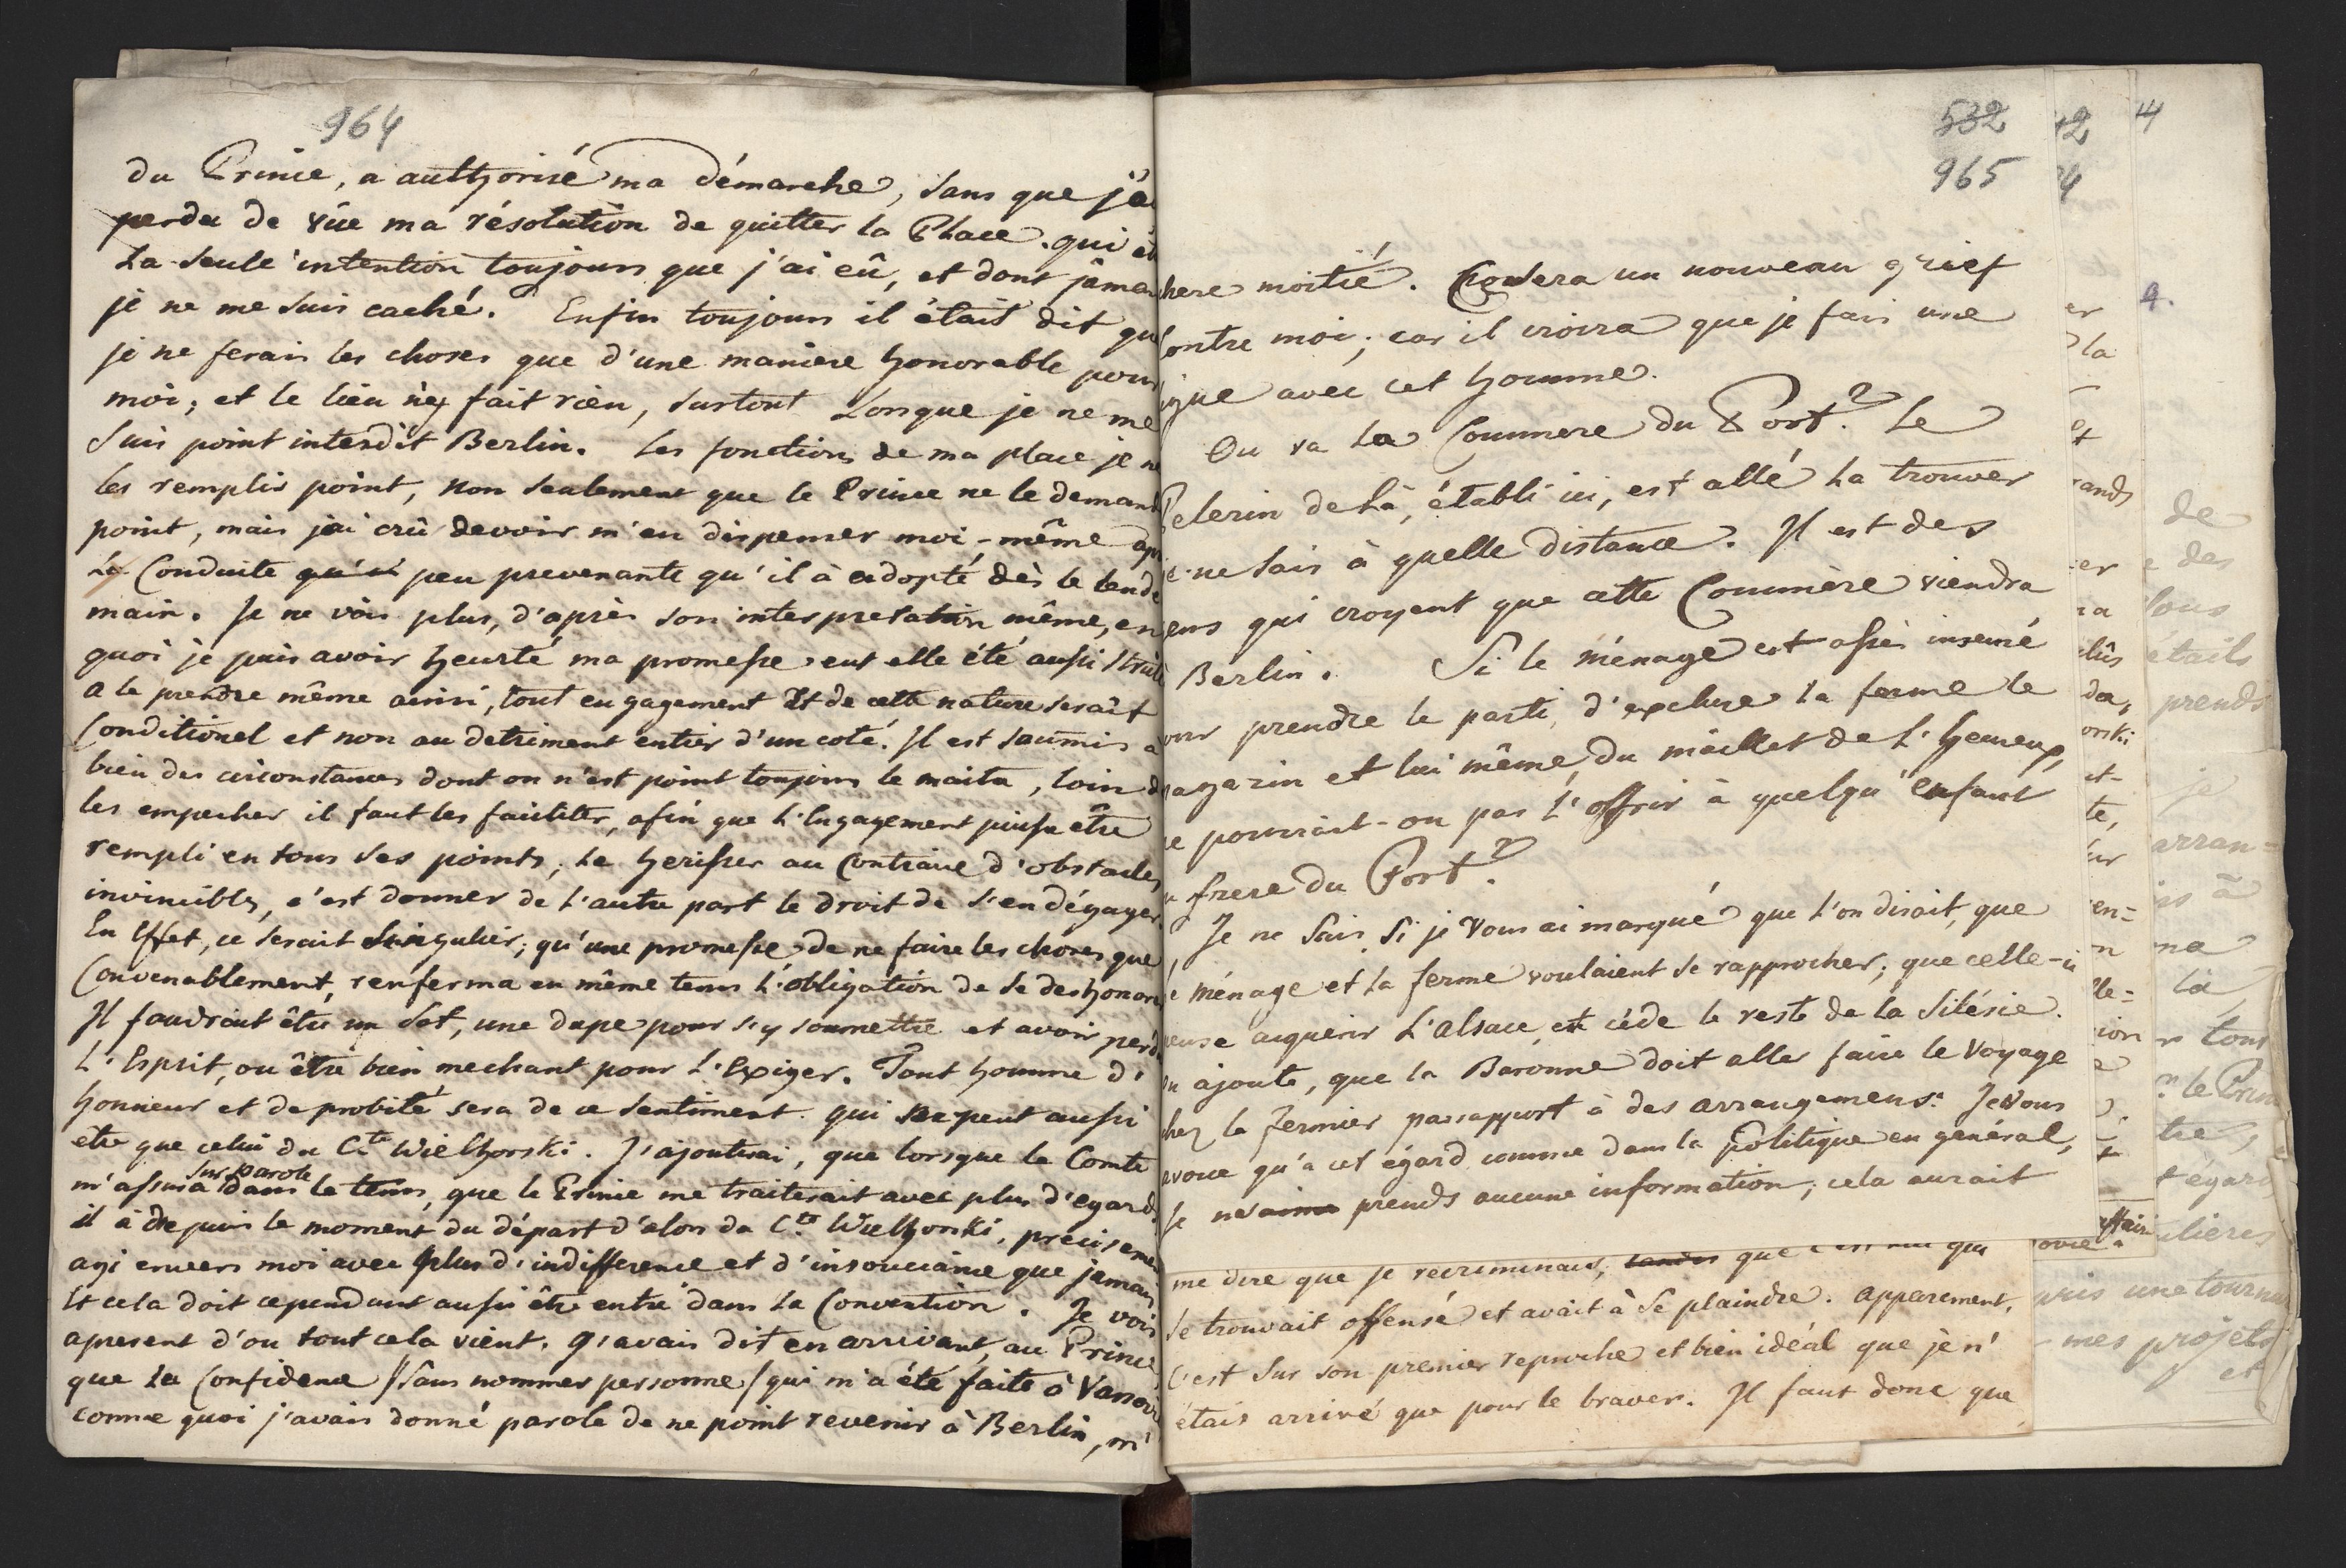 964
du Prince, a authorisé ma démarche, sans que j'a
perdu de vüe ma résolution de quitter la Place. qui é
La seule intention toujours que j'ai eû, et dont jamai
je ne me suis caché. Enfin toujours il était dit que
je ne ferais les choses que d'une maniere honorable pour
moi; et le lieu n'ey fait rien, surtout Lorsque je ne me
suis point interdit Berlin. Les fonctions de ma place je ne
les remplis point, non seulement que le Prince ne le demand
point, mais j'ai crû devoir m'en dispenser moi-même apr
La Conduite peu prevenante qu'il à adopté dès le lende
main. Je ne vois plus, d'après son interpretation même, en
quoi je puis avoir heurté ma promesse. eut elle été aussi stricte
a le prendre même ainsi, tout engagement de cette nature serait
Conditionel et non au detriment entier d'un coté. Il est soumis a
bien des circonstances dont on n'est point toujours le maitre, loin d
les empecher il faut les faciliter, afin que L'Engagement puisse être
rempli en tous ses points; Le herisser au Contraire d'obstacles
invincibles, c'est donner de L'autre part le droit de s'en dégager.
En Effet, ce serait Singulier; qu'une promesse de ne faire les choses que
Convenablement, renferma en même tems L'obligation de se deshonore
Il faudrait être un Sot, une dupe pour s'y soumettre et avoir perdu
L'Esprit, ou être bien mechant pour L'Exiger. Tout homme d'
honneur et de probité sera de ce sentiment. qui ne peut aussi
être que celui du Cte Wielhorski. J'ajouterai, que lorsque le Comte
sur parole
m'assura dans le tems, que le Prince me traiterait avec plus d'egards
il à depuis le moment du départ d'alors du Cte Wielhorski, précisemen
agi envers moi avec plus d'indifference et d'insouciance que jamais
Et cela doit cependant aussi être entré dans la Convention. Je vois
apresent d'ou tout cela vient. J'avais dit en arrivant, au Prince
que La Confidence /sans nommer personne/ qui m'a été faite à Varsovi
comme quoi j'avais donné parole de ne point revenir à Berlin, m'
532
965
here moitié. Ce sera un nouveau grief
ontre moi; car il croira que je fais une
igue avec cet homme.
Ou va La Commere du Port? Le
Pelerin de Là, établi ici, est allé La trouver
je ne sais à quelle distance. Il est des
ens qui croyent que cette Commère viendra
Berlin. Si le ménage est assés insensé
our prendre le parti, d'exclure la ferme le
magazin et lui même, du maillet de L'
e pourrait-on pas L'offrir à quelqu'enfant
u frere du Port?
Je ne sais si je vous ai marqué que L'on disait, que
e ménage et La ferme voulaient se rapprocher; que celle-ci
pense acquerir L'Alsace, et céde le reste de la Silésie.
on ajoute, que la Baronne doit aller faire le Voyage
chez le Fermier par rapport à des arrangemens. Je vous
avoue qu'à cet égard comme dans la Politique en general,
Je ne prends aucune information; cela aurait
me dire que je recriminais, que
se trouvait offensé et avait à Se plaindre. apparement,
C'est sur son premier reproche et bien idéal que je n'
étais arrivé que pour le braver. Il faut donc que
42
4
4
4.
er
la
et
rands
er
na
plûs
da,
orski
et-
te,
ur
en=
n
lle=
ion
de
e des
Vous
étails
prends
je
arran=
is à
ma
là
r tous
le Prin
tre
t égard
lieres
puis une tournu
- mes projets
et